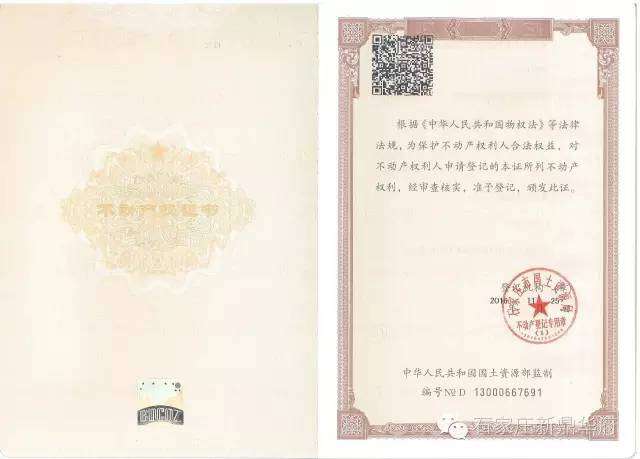 不动产权证书
根据《中华人民共和国物权法》等法律
法规，为保护不动产权利人合法权益，对
不动产权利人申请登记的本证所列不动产
权利，经审查核实，准予登记，颁发此证。
不动产登记专用章
中华人民共和国国土资源部监制
编号 № D 13000667691
石家庄新鼎华府